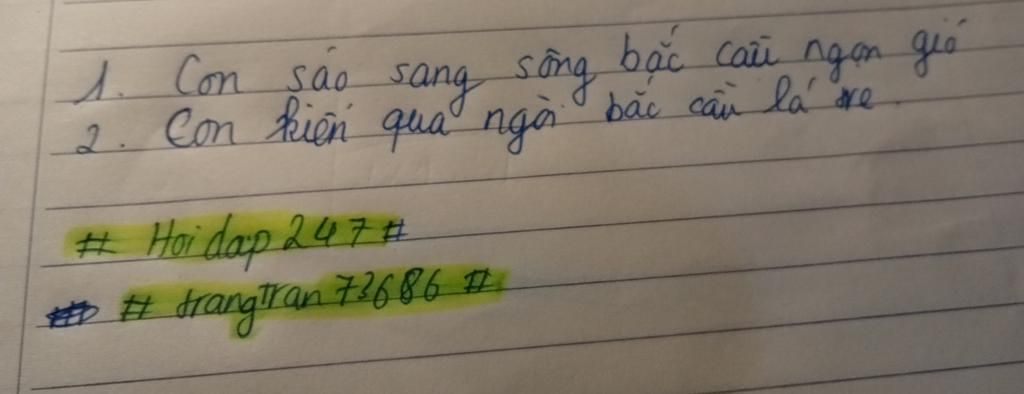 1. Con sáo sang sông bắc cầu ngọn gió
2. Con kiến qua ngòi bắc cầu lá tre
# Hoidap247#
# trangtran73686 #